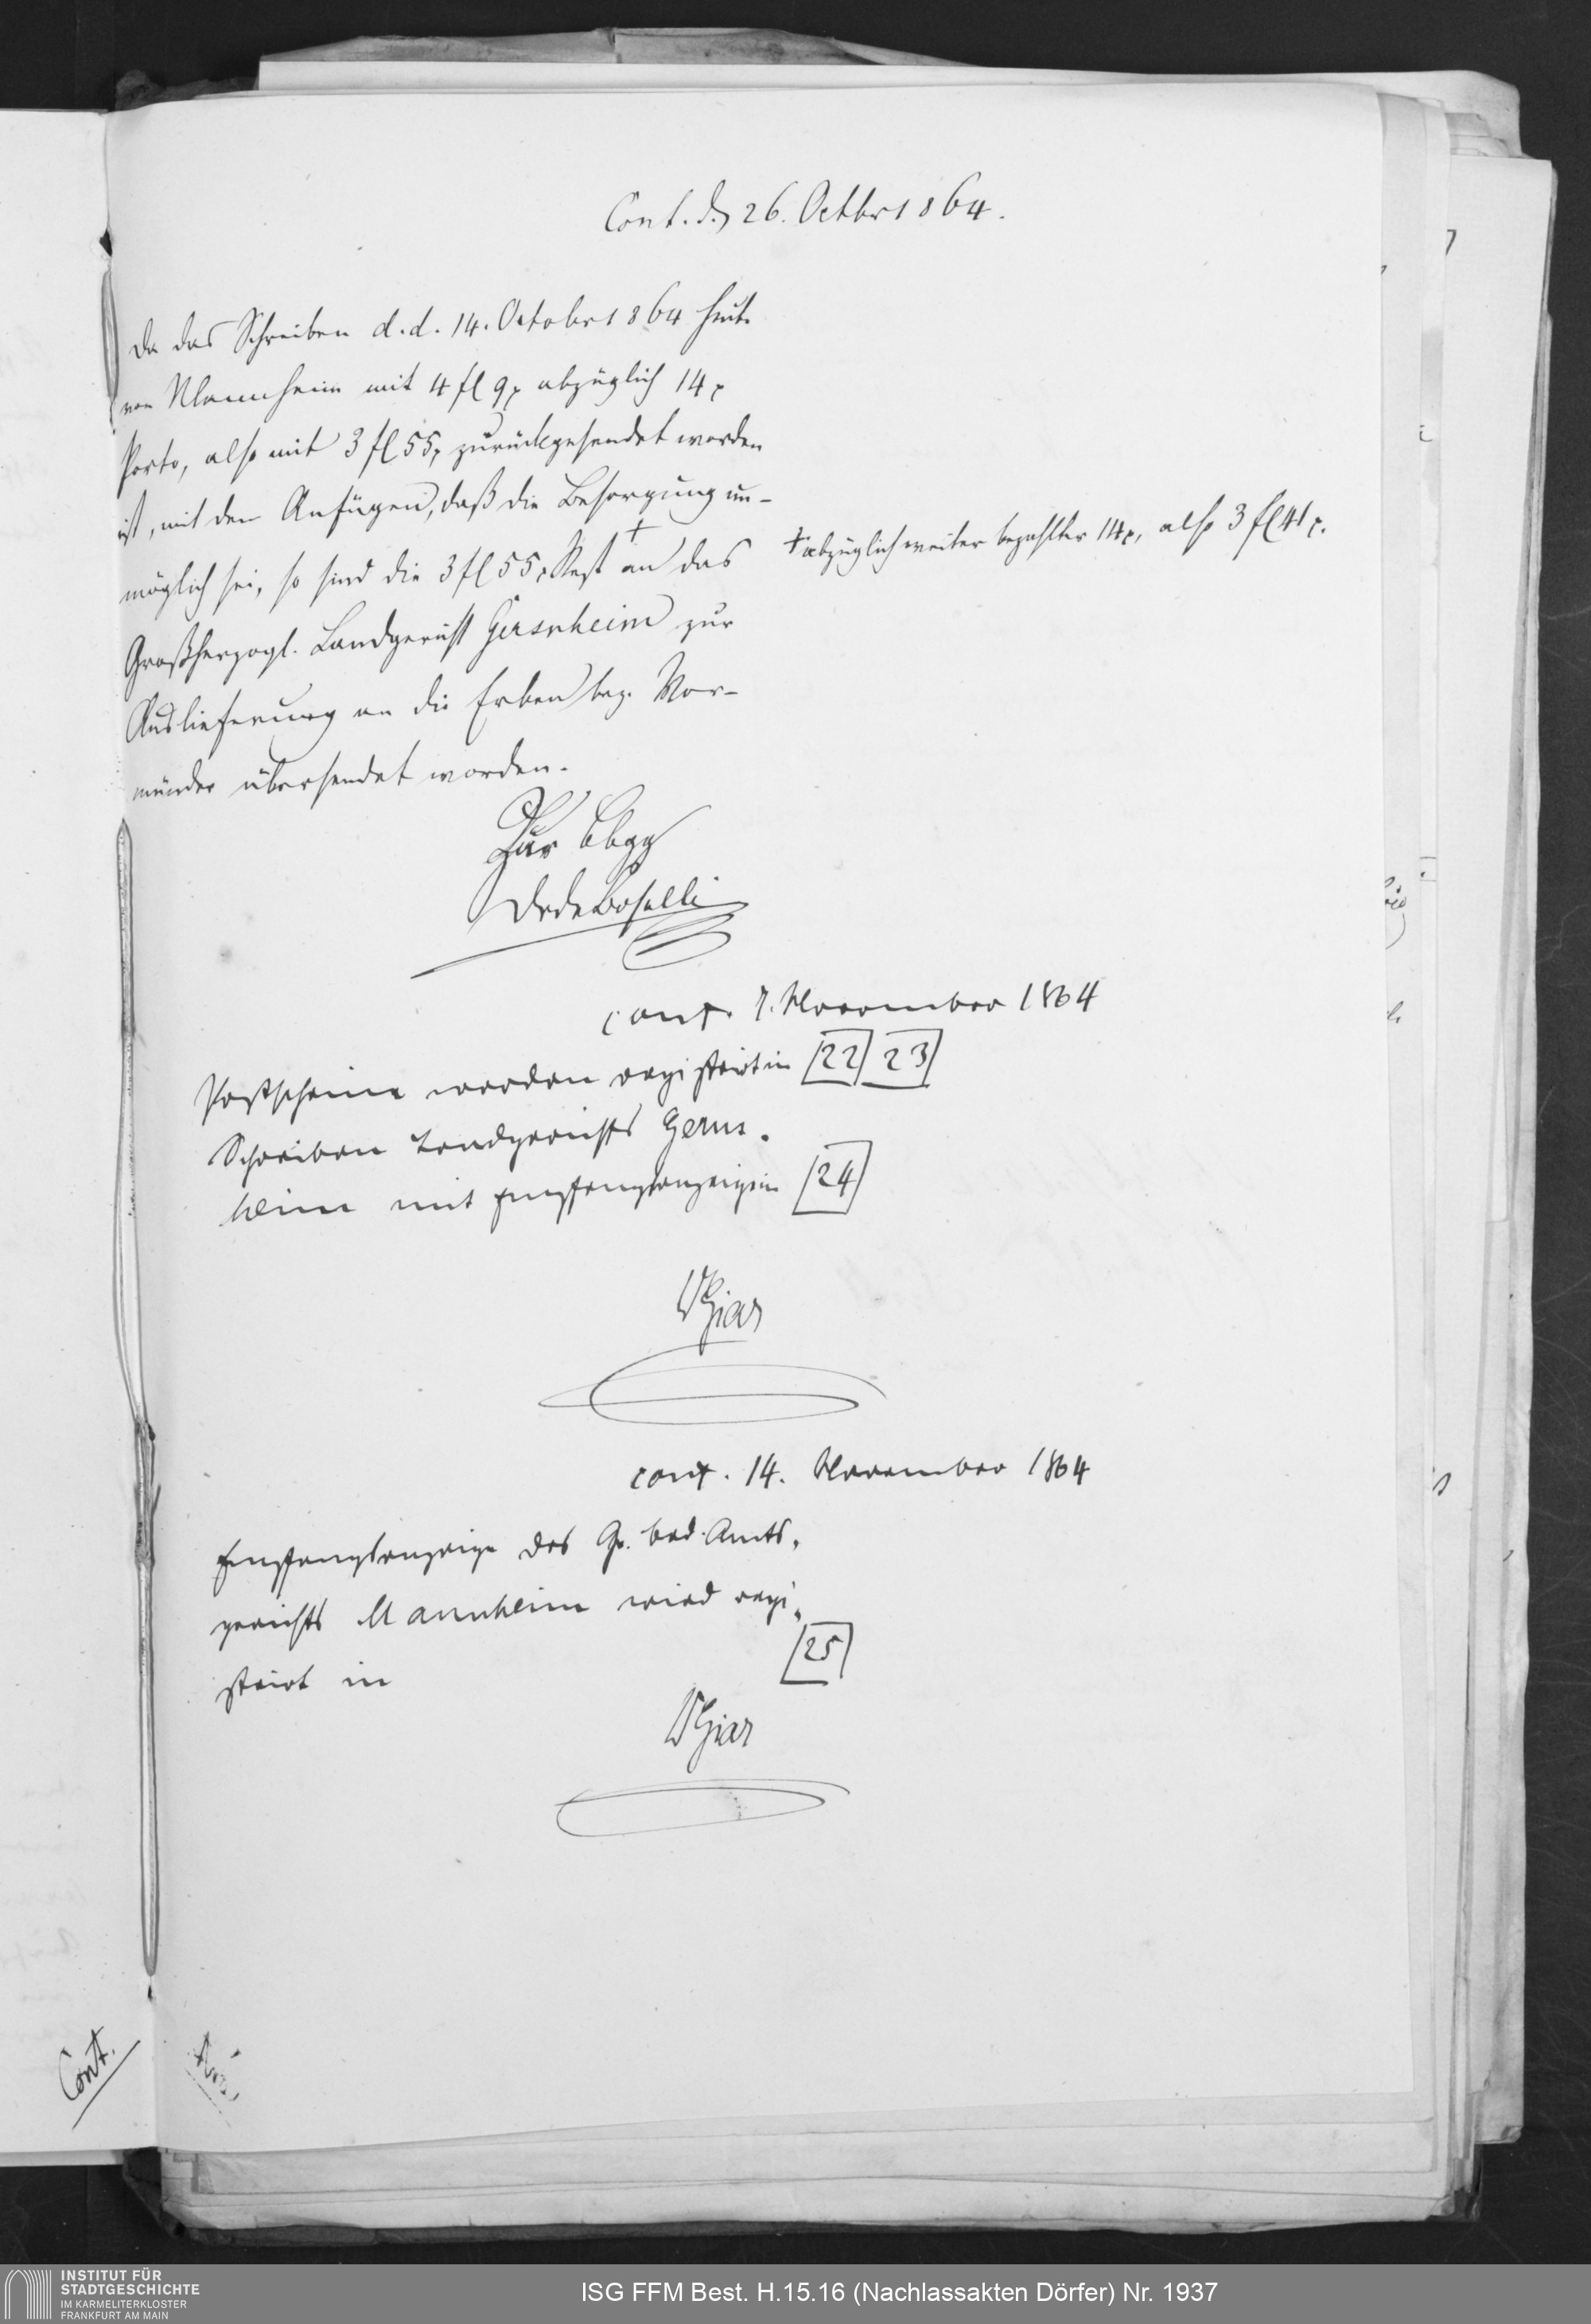 Cont. d. 26. Octbr 1864.
Da das Schreiben d. d. 14. Octobr 1864 heute
von Mannheim mit 4 fl 9 x abzüglich 14 x
Porto, also mit 3 fl 55 x zurückgesendet worden
ist, mit dem Anfügen, daß die Besorgung un-
möglich sei, so sind die 3 fl 55 x Rest † an das
† abzüglich weiter bezahlter 14 x, also 3 fl 41 x.
Großherzogl. Landgericht Gernsheim zur
Auslieferung an die Erben bez. Vor-
münder übersendet worden.
Zur
Dr de Boselli
cont. 7. November 1864
Postscheine werden registrirt in [22] [23]
Schreiben Landgerichts Gerns-
heim mit Empfangsanzeige in [24]
cont. 14. November 1864
Empfangsanzeige des Gr. bad. Amts-
gerichts Mannheim wird regi-
strirt in [25]
Cont.
INSTITUT FÜR
STADTGESCHICHTE
IM KARMELITERKLOSTER
FRANKFURT AM MAIN
ISG FFM Best. H.15.16 (Nachlassakten Dörfer) Nr. 1937